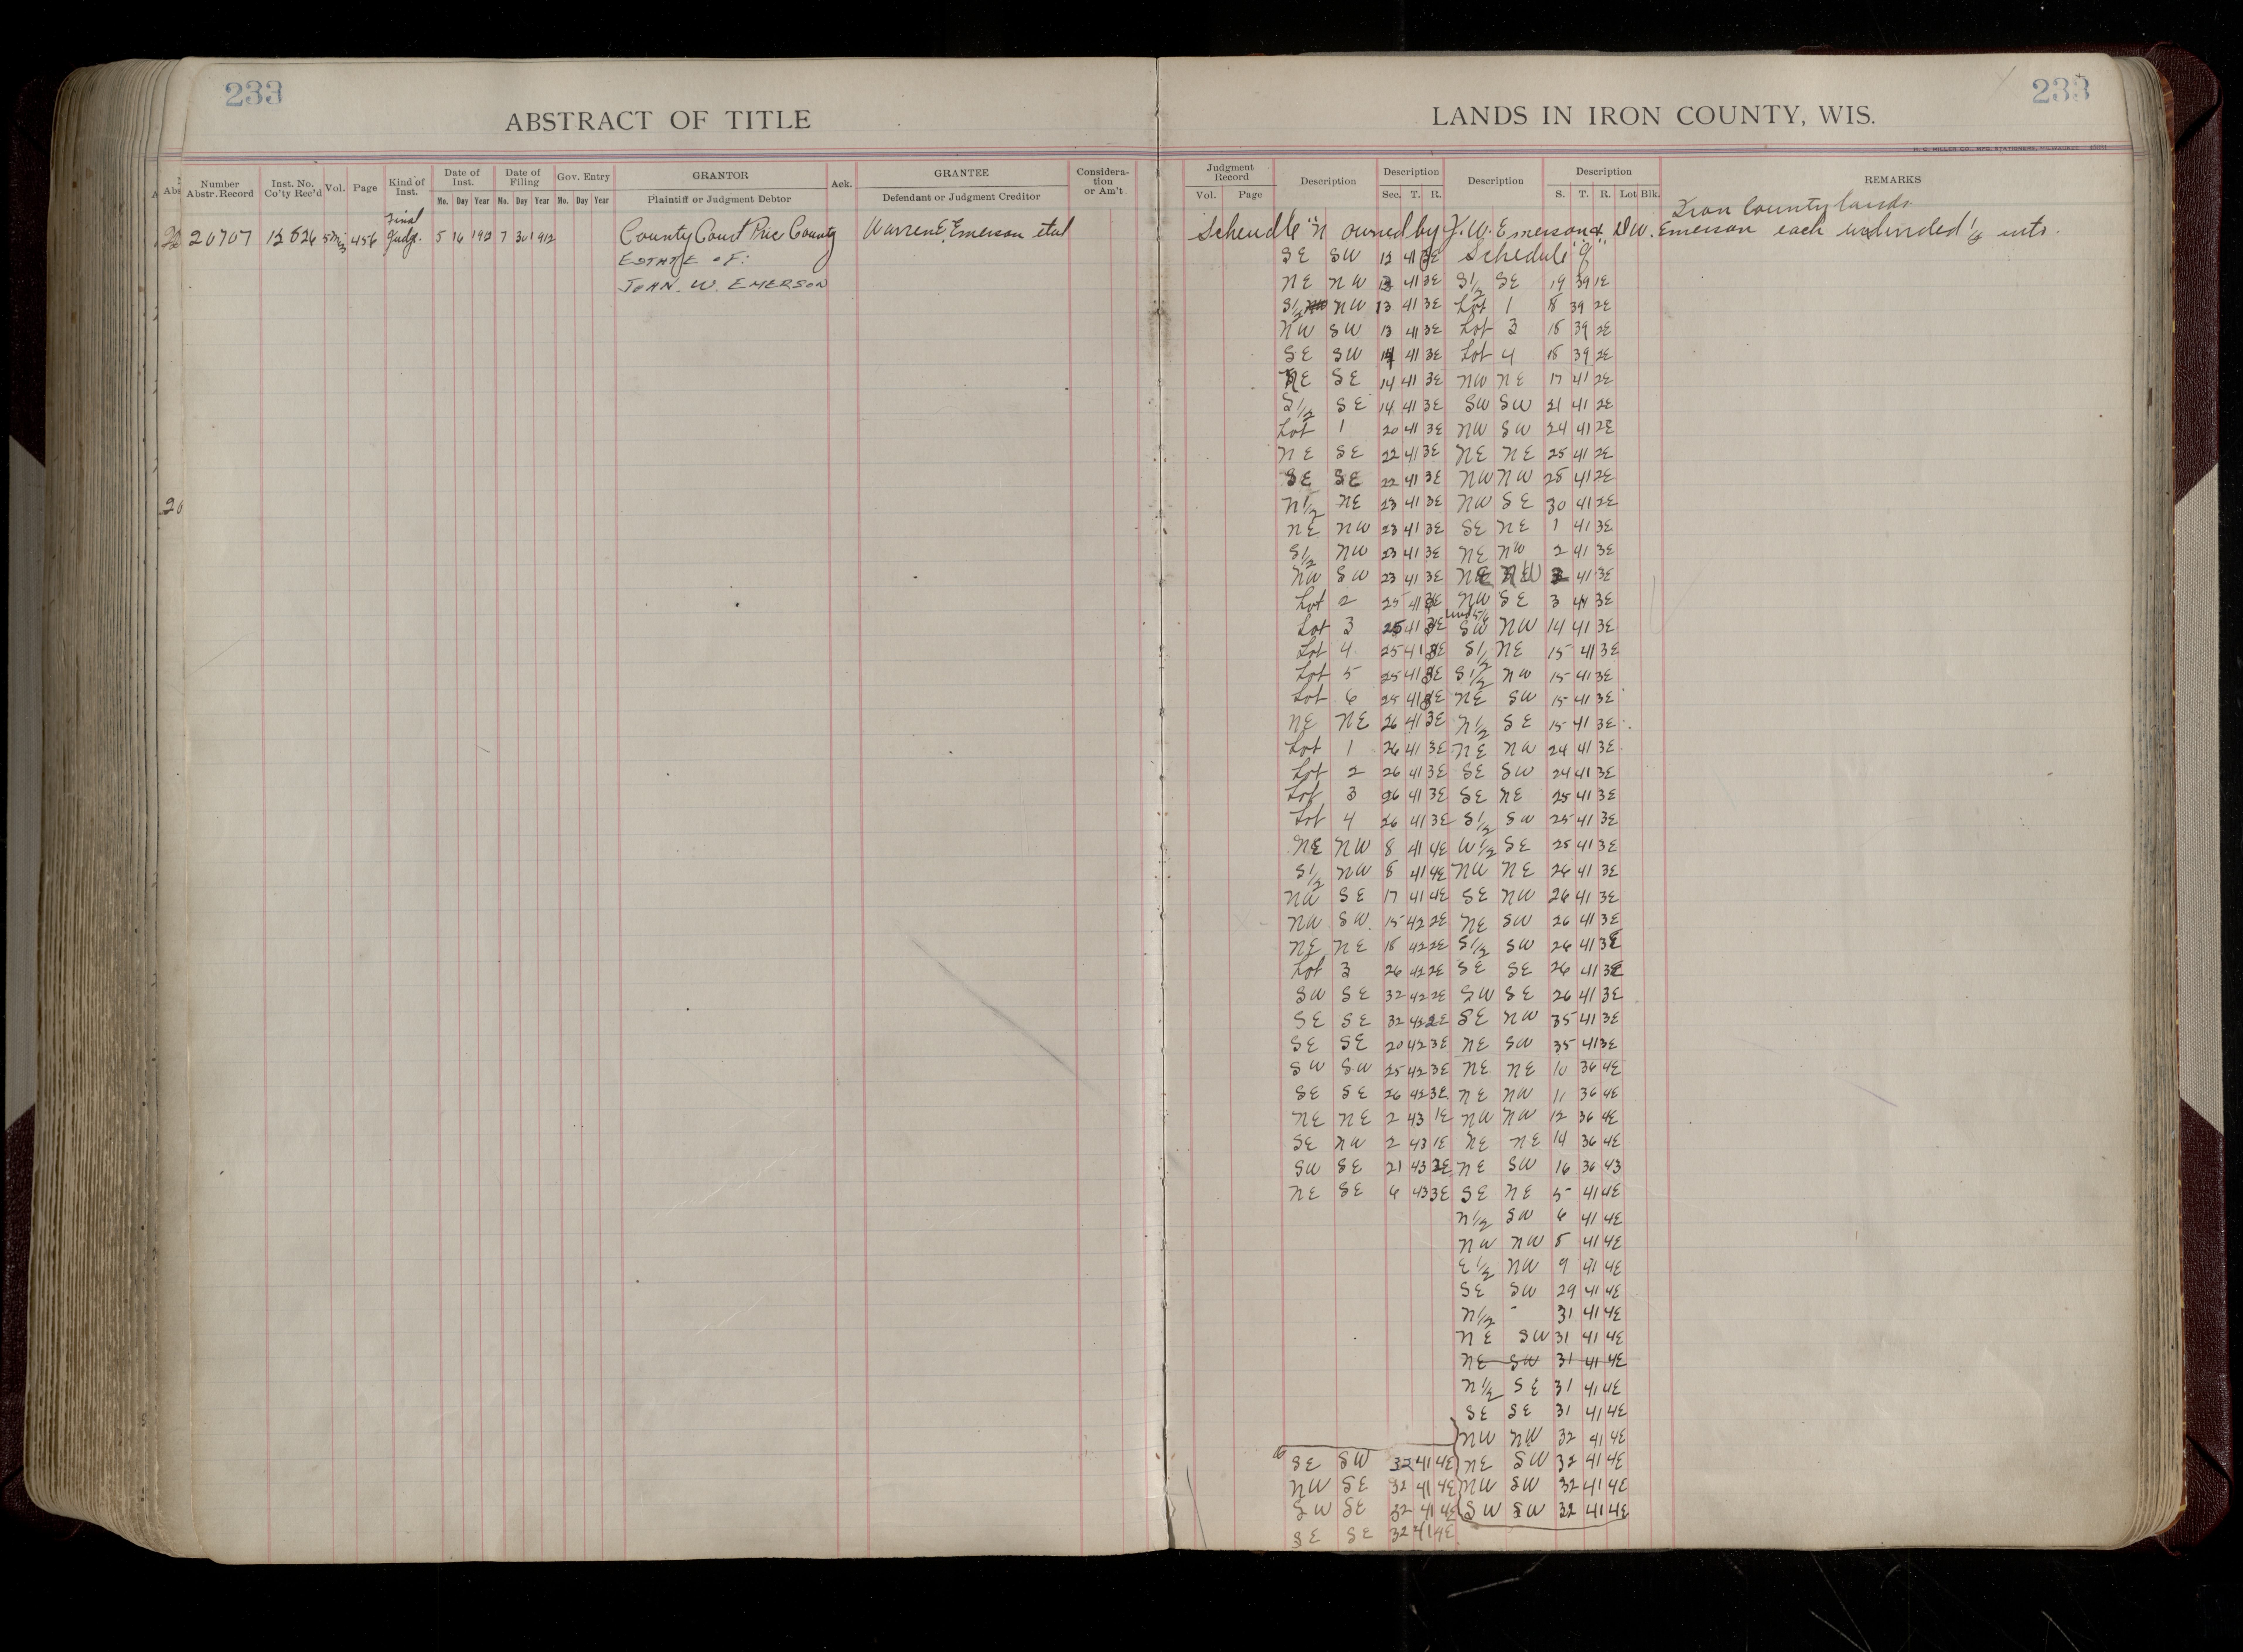 233
ABSTRACT OF TITLE
Number Abstr. Record
Inst. No. Co'ty Rec'd
Vol.
Page
Kind of Inst.
Date of Inst.
Mo. Day Year
Date of Filing
Mo. Day Year
Gov. Entry
Mo. Day Year
GRANTOR
Plaintiff or Judgment Debtor
Ack.
GRANTEE
Defendant or Judgment Creditor
Considera-tion or Am't
Final
20707 456 Judg. 5 16 7 30 1912 County Court Price County Warren E. Emerson etal
ESTATE OF:
JOHN. W. EMERSON
20
233
LANDS IN IRON COUNTY, WIS.
H. C. MILLER CO., MFG. STATIONERS, MILWAUKEE
Judgment Record
Vol. Page
Description
Description
Sec. T. R.
Description
Description
S. T. R. Lot Blk.
REMARKS
Iron County lands
owned by J. W. Emerson & D W. Emerson each ints.
SE SW 12 41 3E Schedule
NE NW 41 3E S1/2 SE 19 39 1E
S1/2 NW 13 41 3E Lot 1 18 39 2E
NW SW 13 41 3E Lot 3 18 39 2E
SE SW 14 41 3E Lot 4 18 39 2E
NE SE 14 41 3E NW NE 17 41 2E
S1/2 SE 14 41 3E SW SW 21 41 2E
Lot 1 20 41 3E NW SW 24 41 2E
NE SE 22 41 3E NE NE 25 41 2E
SE SE 22 41 3E NW NW 25 41 2E
N1/2 NE 23 41 3E NW SE 30 41 2E
NE NW 23 41 3E SE NE 1 41 3E
S1/2 NW 23 41 3E NE NW 2 41 3E
NW SW 23 41 3E NE 41 3E
Lot 2 25 41 3E NW SE 3 41 3E
Lot 3 25 41 3E SW NW 14 41 3E
Lot 4 25 41 3E S1/2 NE 15 41 3E
Lot 5 25 41 3E S1/2 NW 15 41 3E
Lot 6 25 41 3E NE SW 15 41 3E
NE NE 26 41 3E N1/2 SE 15 41 3E
Lot 1 26 41 3E NE NW 24 41 3E
Lot 2 26 41 3E SE SW 24 41 3E
Lot 3 26 41 3E SE NE 25 41 3E
Lot 4 26 41 3E S1/2 SW 25 41 3E
NE NW 8 41 4E W1/2 SE 25 41 3E
S1/2 NW 8 41 4E NW NE 26 41 3E
NW SE 17 41 4E SE NW 26 41 3E
NW SW 15 42 2E NE SW 26 41 3E
NE NE 18 42 2E S1/2 SW 26 41 3E
Lot 3 26 42 2E SE SE 26 41 3E
SW SE 32 42 2E SW SE 26 41 3E
SE SE 32 42 2E SE NW 35 41 3E
SE SE 20 42 3E NE SW 35 41 3E
SW SW 25 42 3E NE NE 10 36 4E
SE SE 26 42 3E NE NW 11 36 4E
NE NE 2 43 1E NW NW 12 36 4E
SE NW 2 43 1E NE NE 14 36 4E
SW SE 21 43 2E NE SW 16 36 43
NE SE 6 43 3E SE NE 5 41 4E
N1/2 SW 6 41 4E
NW NW 8 41 4E
E1/2 NW 9 41 4E
SE SW 29 41 4E
N1/2 - 31 41 4E
NE SW 31 41 4E
NE SW 31 41 4E
N1/2 SE 31 41 4E
SE SE 31 41 4E
NW NW 32 41 4E
SE SW 32 41 4E NE SW 32 41 4E
NW SE 32 41 4E NW SW 32 41 4E
SW SE 32 41 4E SW SW 32 41 4E
SE SE 32 41 4E